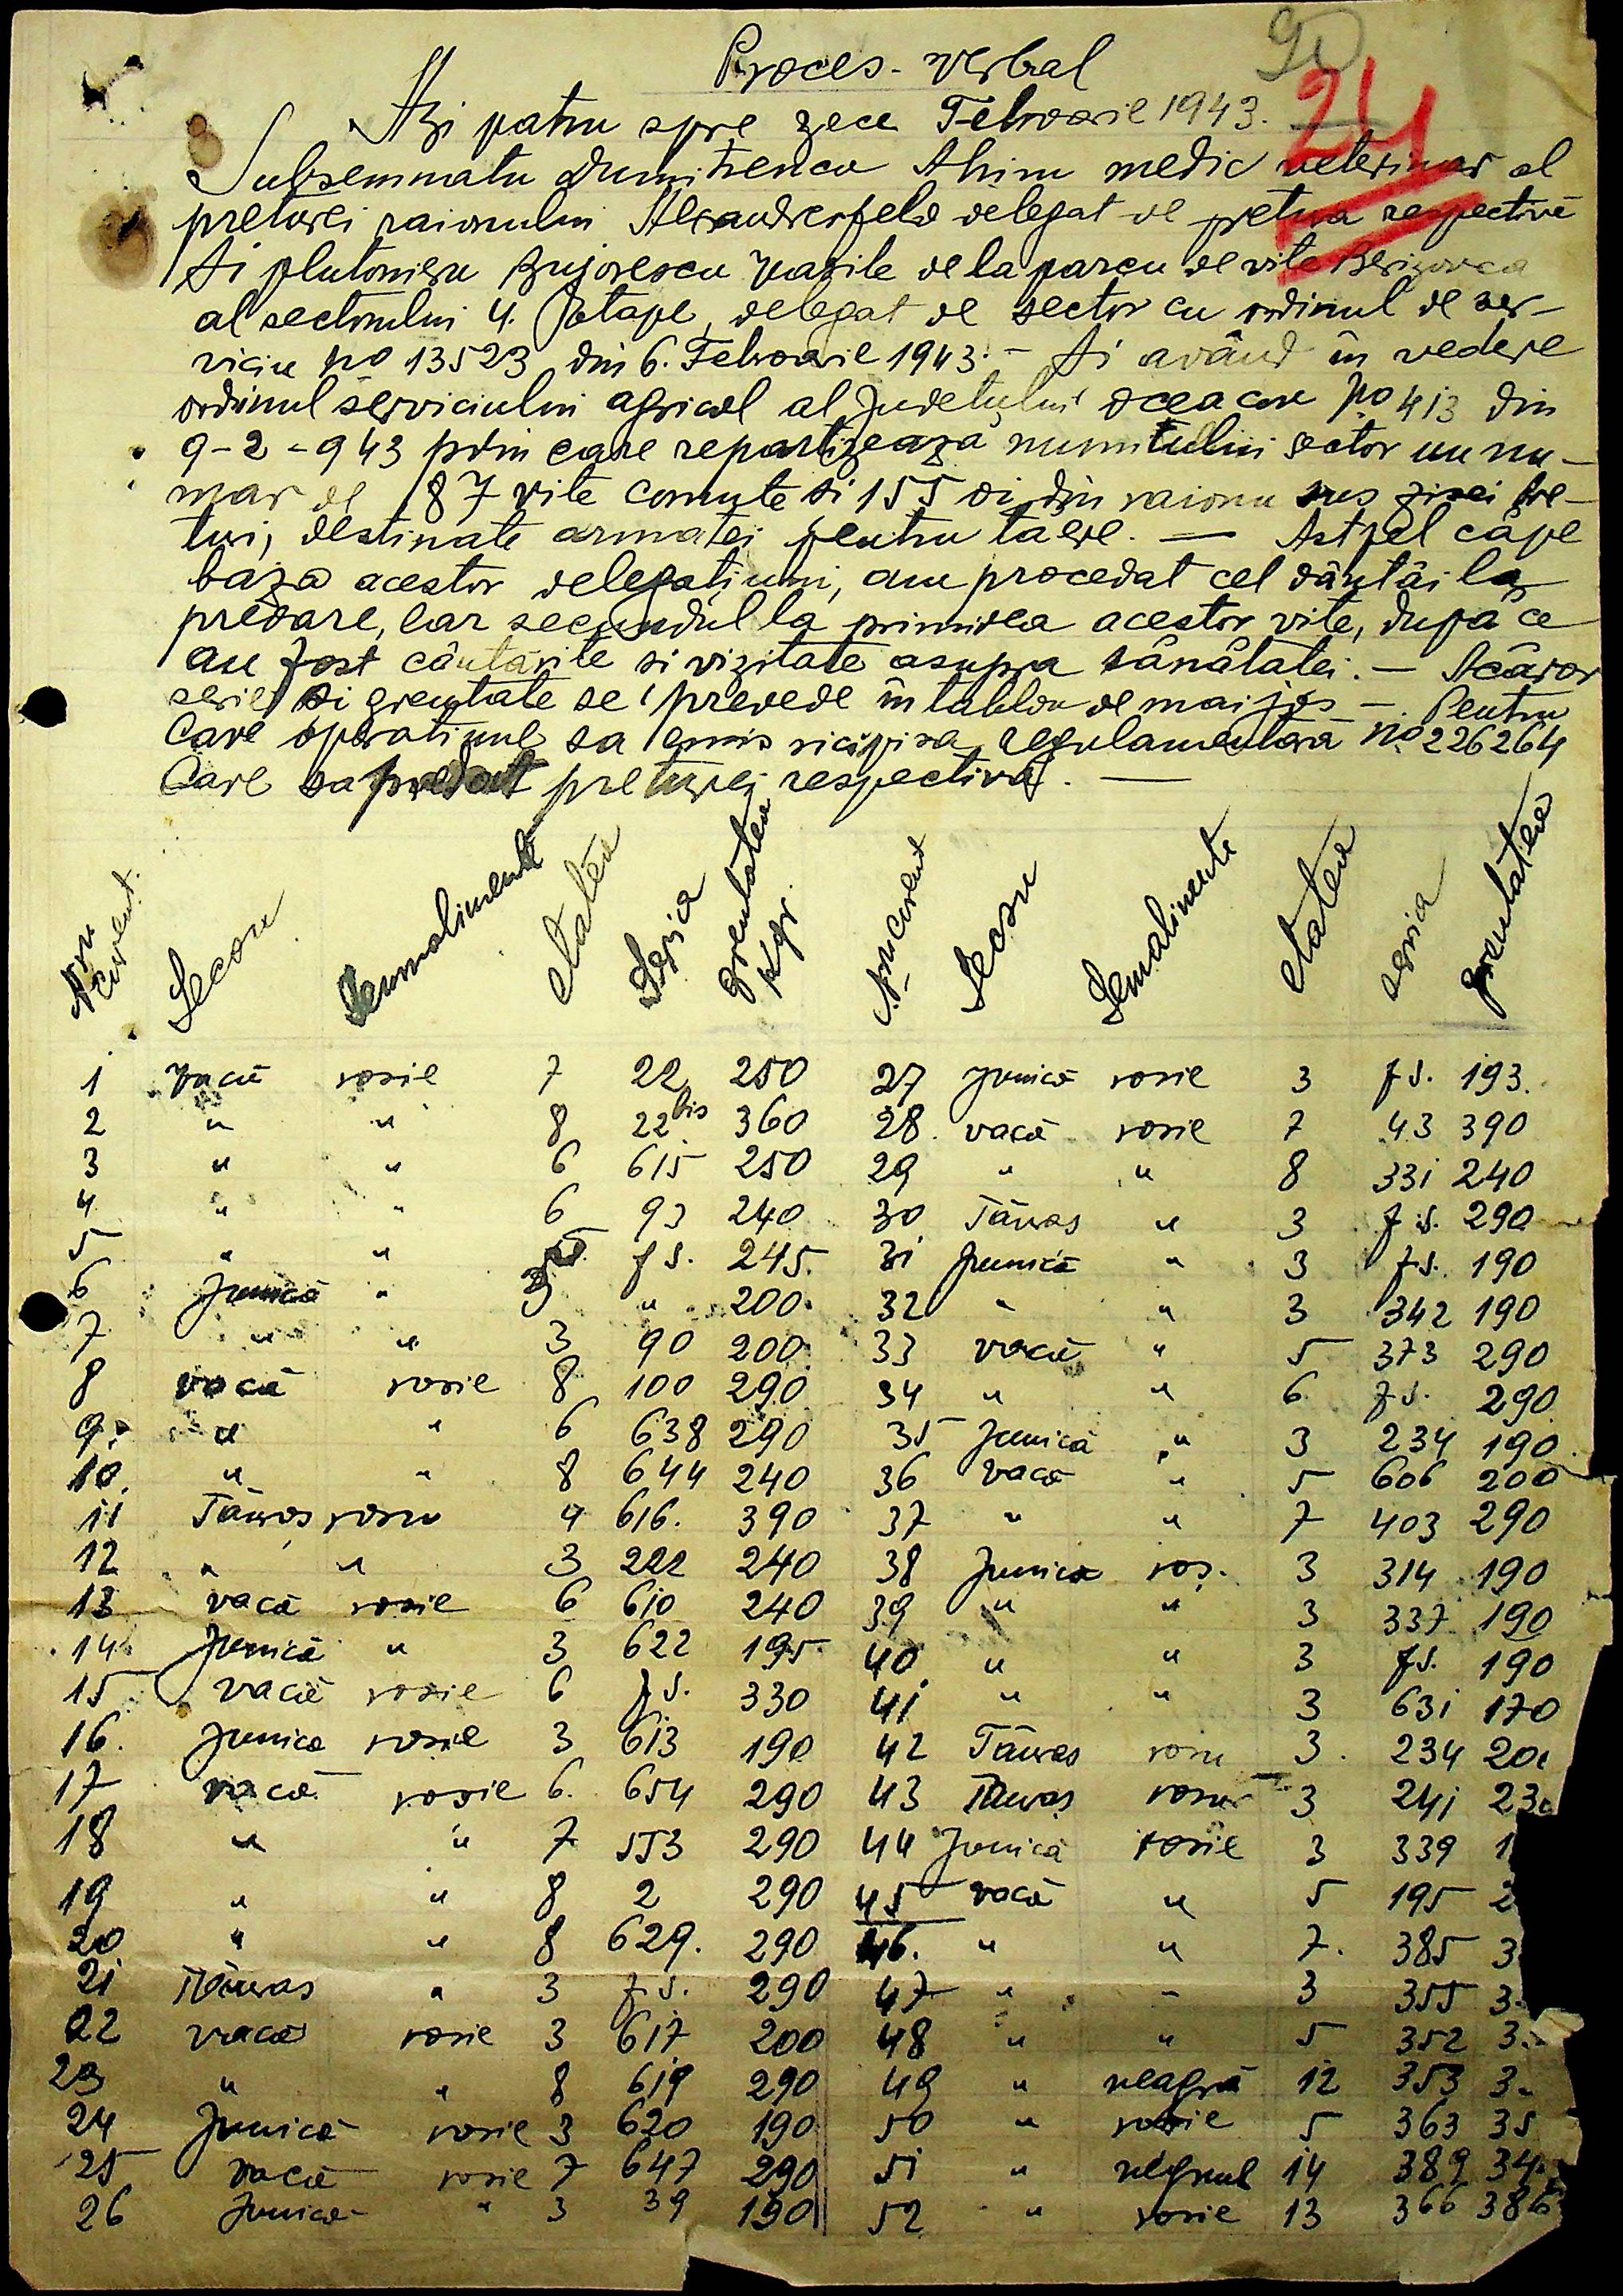 Proces-verbal
90
24
Azi patru spre zece Februarie 1943.
Subsemnatu Dumitrencu medic veterinar al
preturei raionului Alexandrerfeld delegat de pretura respectivă
si plutonieru Bujorescu Vasile de la parcu de vite Berizovca
al sectorului 4. Etape, delegat de sector cu ordinul de ser-
viciu No 13523 din 6. Februarie 1943. – Si având în vedere
ordinul serviciului agricol al Judetului Oceacov No 413 din
9-2-943 prin care repartizeaza numitului sector un nu-
mar de 87 vite cornute si 155 oi din raionu sus zisei pre-
turi, destinate armatei pentru taere. — Astfel câ pe
baza acestor delegatiuni, am procedat cel dântâi la
predare, ear secundul la primirea acestor vite, dupa ce
au fost cântarite si vizitate asupra sânâtatei. — Acâror
seriei si greutate se prevede in tablou de mai jos —. Pentru
Care operatiune sa emis recipisa regulamentara No 226264
Care sa predat preturei respectiva. —
Nru Curent Secsu Semnalimente etatea Seria greutatea Kgr. Nru curent Secsu Semalimente etatea seria greutatea
1 vacă rosie 7 22 250 27 Junică rosie 3 fs. 193.
2 " " 8 22 bis 360 28. vacă rosie 7 43 390
3 " " 6 615 250 29 " " 8 331 240
4 " " 6 93 240 30 Tăuras " 3 fs. 290
5 " " fs. 245. 31 Junică " 3 fs. 190
6 Junică " 3 " 200. 32 " " 3 342 190
7 " " 3 90 200. 33 vacă " 5 373 290
8 vacă rosie 8 100 290 34 " " 6 fs. 290
9. " " 6 638 290 35 Junică " 3 234 190
10. " " 8 644 240 36 vacă " 5 606 200
11 Tăuras rosu 4 616. 390 37 " " 7 403 290
12 " " 3 222 240 38 Junica roș. 3 314 190
13 vacă rosie 6 610 240 39 " " 3 337 190
14 Junică " 3 622 195 40 " " 3 fs. 190
15 vacă rosie 6 fs. 330 41 " " 3 631 170
16. Junica rosie 3 613 190 42 Tăuras rosu 3. 234 20
17 vacă rosie 6. 654 290 43 Tăuras rosu 3 241 23
18 " " 7 553 290 44 Junică rosie 3 339 1
19 " " 8 2 290 45 vacă " 5 195 2
20 " " 8 629. 290 46. " " 7. 385 3
21 Tăuras " 3 fs. 290 47 " – 3 355 3
22 vacă rosie 3 617 200 48 " " 5 352 3
23 " " 8 619 290 49 " neagră 12 353 3
24 Junică rosie 3 620 190 50 " rosie 5 363 35
25 vacă rosie 7 647 290 51 " 14 389 34
26 Junică " 3 39 190 52 " rosie 13 366 386